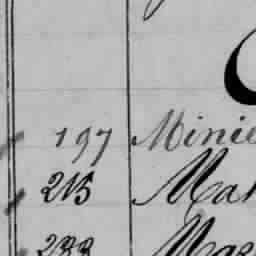 197 Minie
215 Mar
233 Mar